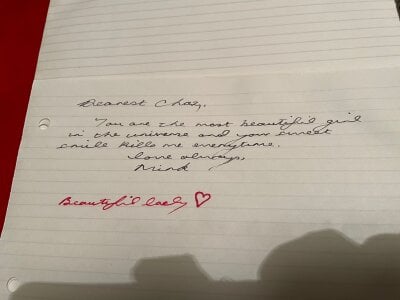 Dearest Chaz,
You are the most beautiful girl
in the universe and your sweet
smile kills me everytime.
love always,
Beautiful lady ♡